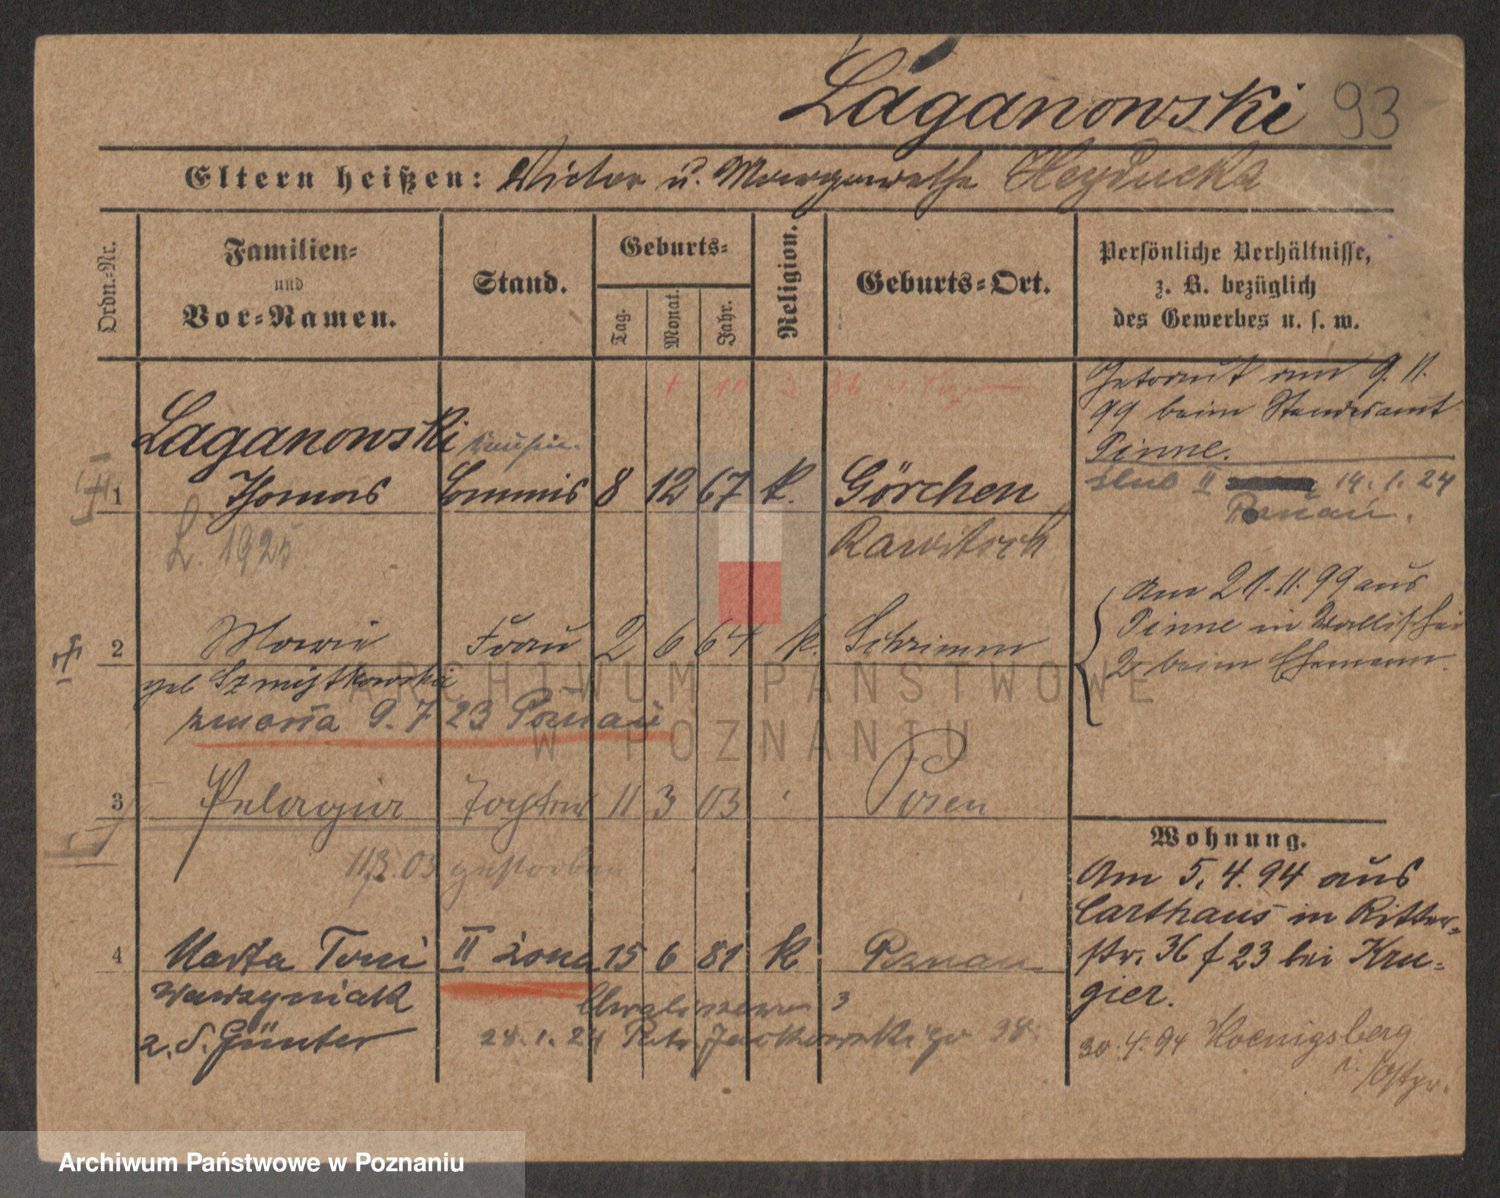 Łaganowski 93
Eltern heißen: Victor u. Margarethe Heyducka
Ordn.-Nr.
Familien-
und
Vor-Namen.
Stand.
Geburts-
Tag.
Monat.
Jahr.
Religion.
Geburts-Ort.
Persönliche Verhältnisse,
z. B. bezüglich
des Gewerbes u. s. w.
Łaganowski
1 Thomas Commis 8 12 67 k. Görchen
Ł. 1925 Rawitsch
Getraut am 9. 11.
99 beim Standesamt
Pinne.
ślub II 14. 1. 24
Poznań.
2 Marie Frau 2 6 64 k. Schrimm
geb Szmijtkowska
zmarła 9. 7 23 Poznań
Am 21. 11. 99 aus
Pinne in Wallischei
2 beim Ehemann.
3 Pelagia Tochter 11 3 03 Posen
11/3. 03 gestorben
4 Marta Toni II żona 15 6 81 k Poznań
Wawrzyniak
z. d. Günter
3
28. 1. 24 Jackowskiego 38.
Wohnung.
Am 5. 4. 94 aus
Carthaus in Ritter-
str. 36 f 23 bei Kru-
gier.
30. 4. 94 Koenigsberg
i./Ostpr.
ARCHIWUM PAŃSTWOWE
W POZNANIU
Archiwum Państwowe w Poznaniu